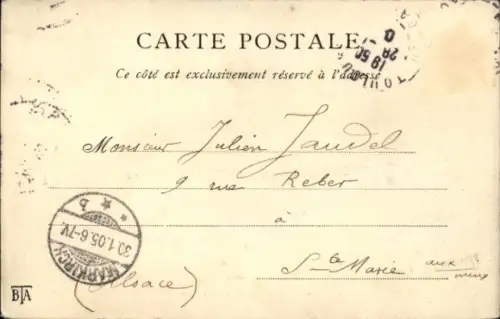 CARTE POSTALE
Ce côté est exclusivement réservé à l'adresse
Monsieur Julien Jaudel
9 rue Reber
à
Ste Marie aux
mines
(Alsace)
MARKIRCH
30.1.05.6-7V.
* * b
BTA